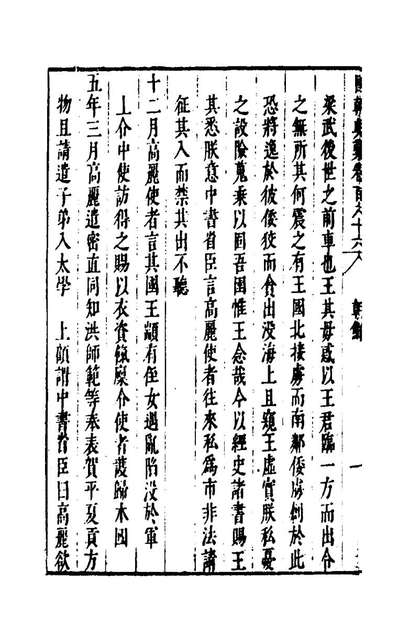 國朝典彙卷百六十六 朝鮮 一
梁武後世之前車也王其毋惑以王君臨一方而出令
之無所其何震之有王國北接虜而南鄰倭創於此
恐將逸於彼倭狡而貪出没海上且窺王虛實朕私憂
之設險蒐乘以固吾圉惟王念哉今以經史諸書賜王
其悉朕意中書省臣言高麗使者往來私爲市非法請
征其入而禁其出不聽
十二月高麗使者言其國王顓有侄女遇亂陷没於軍
上令中使訪得之賜以衣資餼廩令使者護歸本國
五年三月高麗遣密直同知洪師範等奉表賀平夏貢方
物且請遣子弟入太學 上顧謂中書省臣曰高麗欲